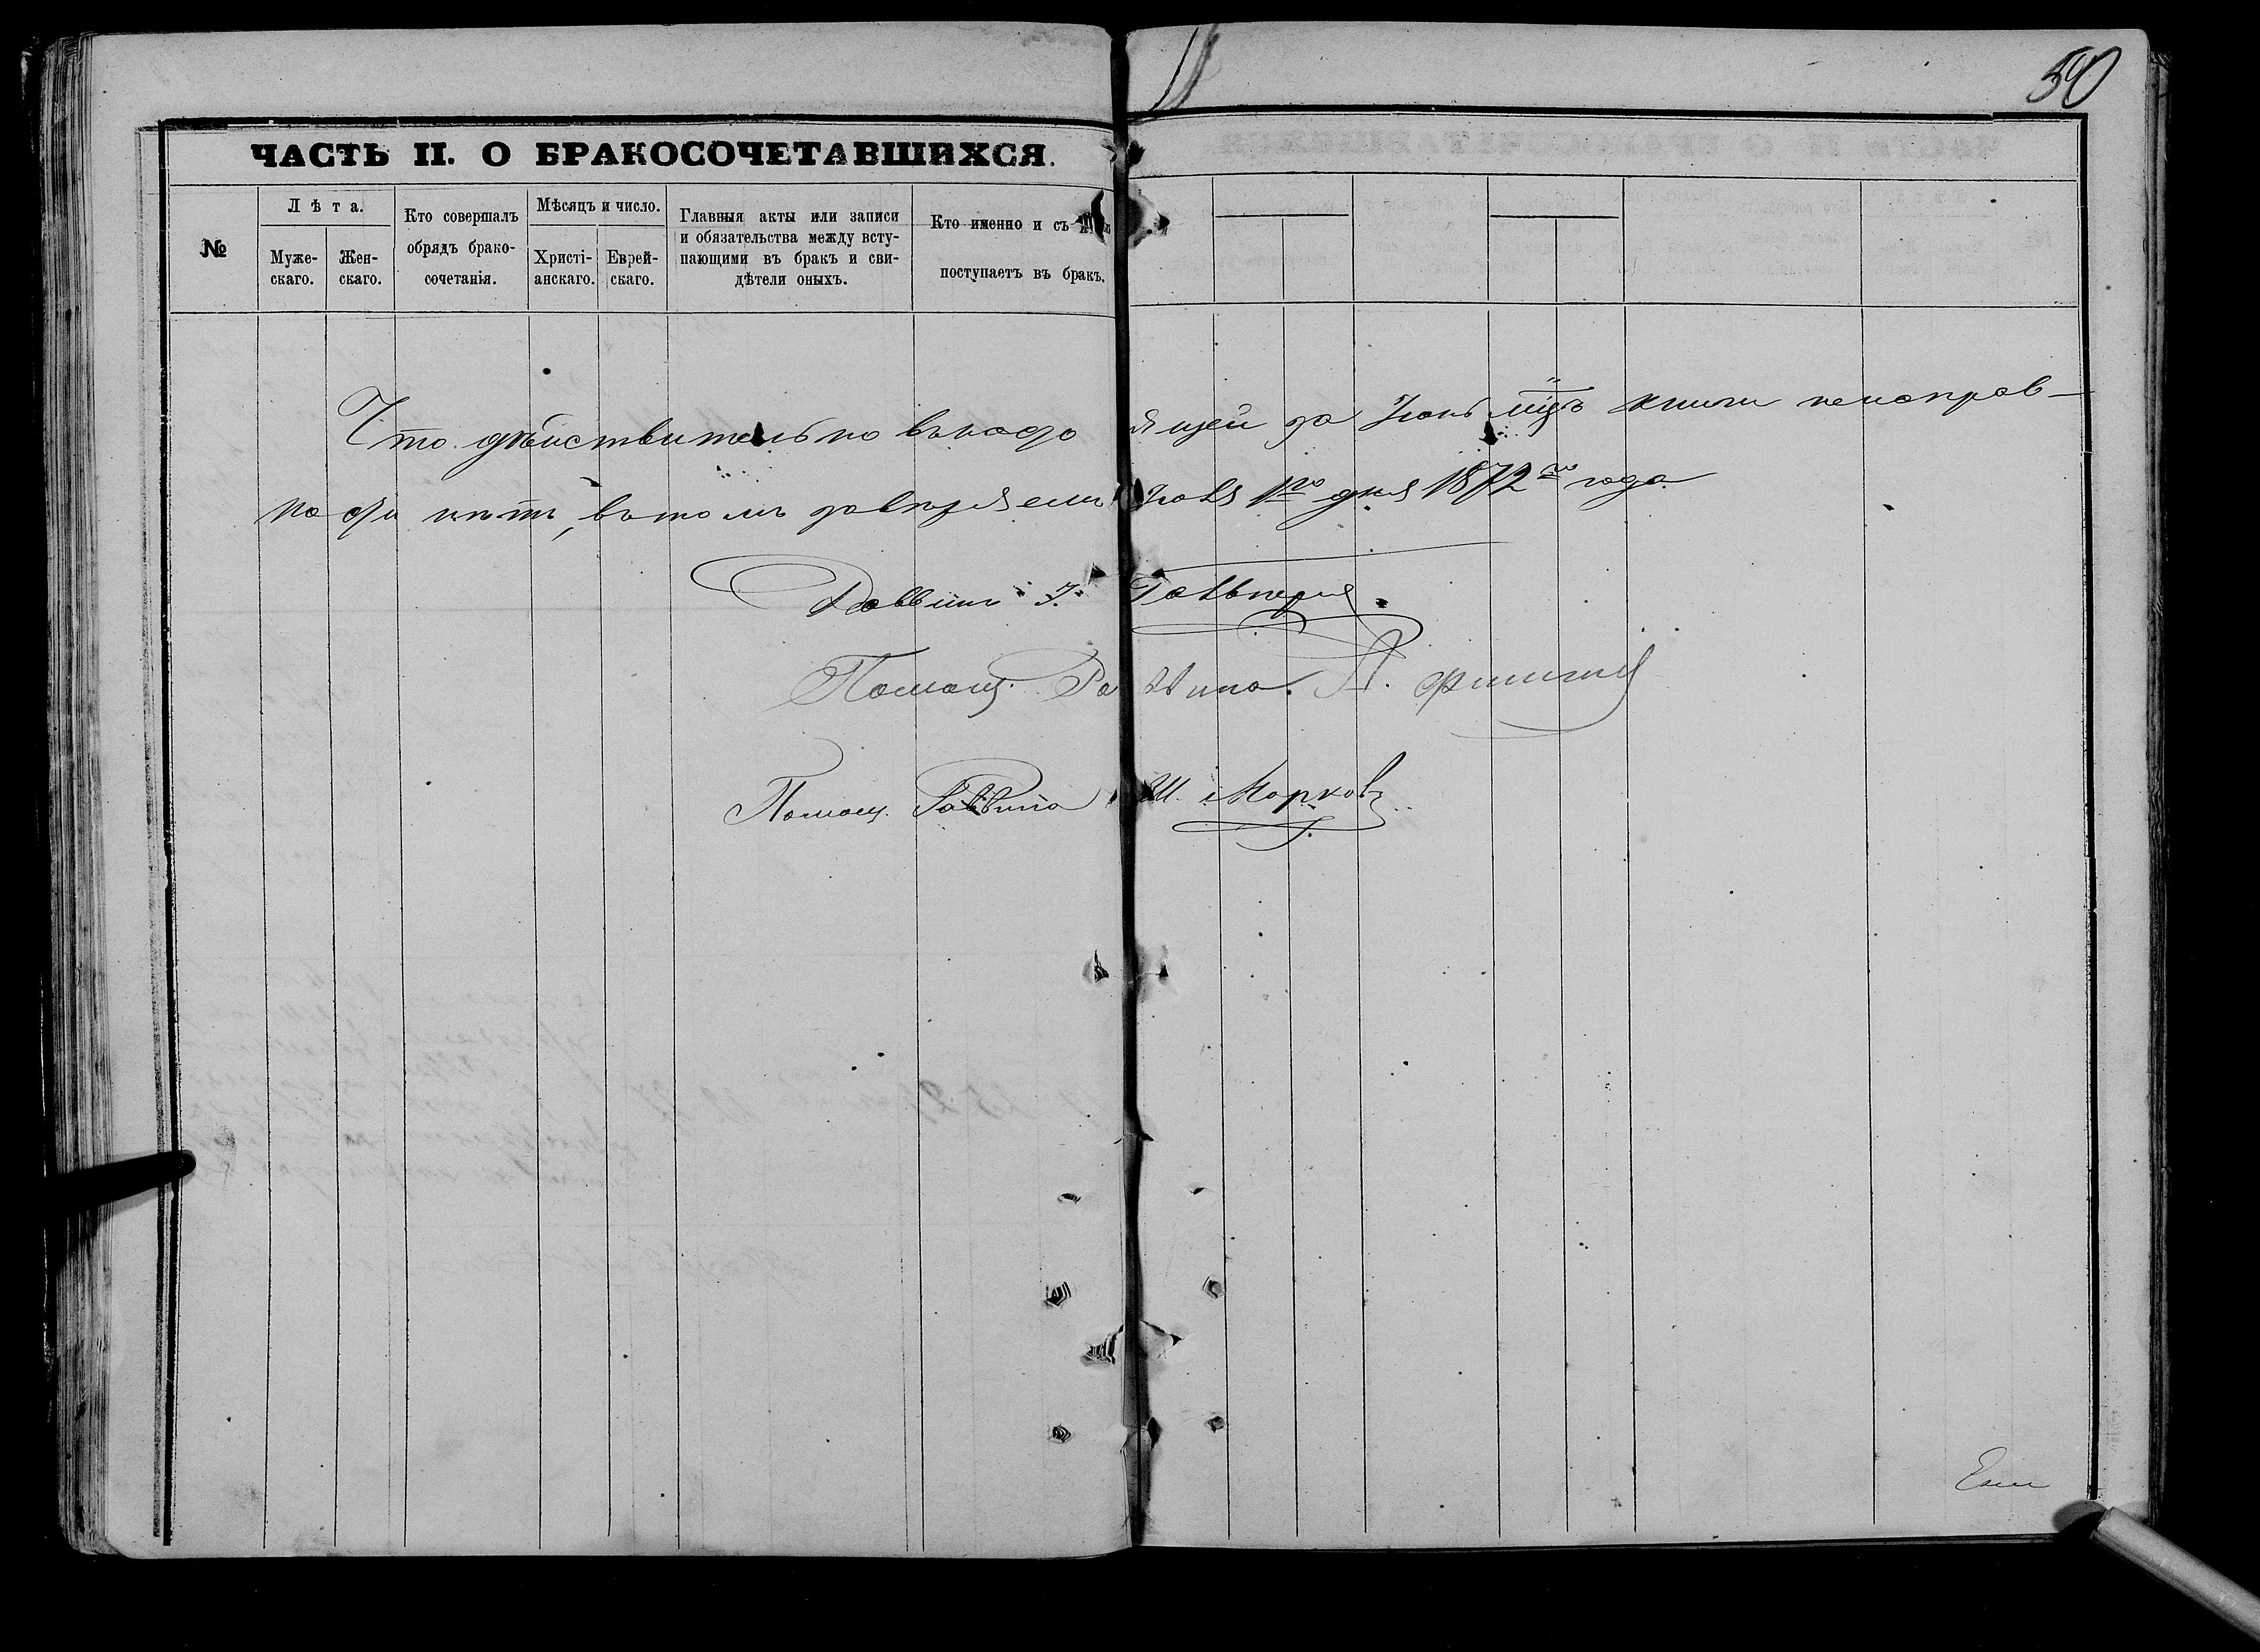 50
ЧАСТЬ II. О БРАКОСОЧЕТАВШИХСЯ.
№
Лѣта.
Муже-
скаго.
Жен-
скаго.
Кто совершалъ
обрядъ брако-
сочетанія.
Мѣсяцъ и число.
Христі-
анскаго.
Еврей-
скаго.
Главныя акты или записи
и обязательства между всту-
пающими въ бракъ и сви-
дѣтели оныхъ.
Кто именно и съ
поступаетъ въ бракъ.
Что дѣйствительно въ настоящей за Іюнь мцъ книги неисправ-
ности нѣтъ, въ томъ завѣряемъ Іюля 1го дня 1872го года
Раввинъ І. Гальперн
Помощ. Раввина
Помощ. Раввина Ш. Марков